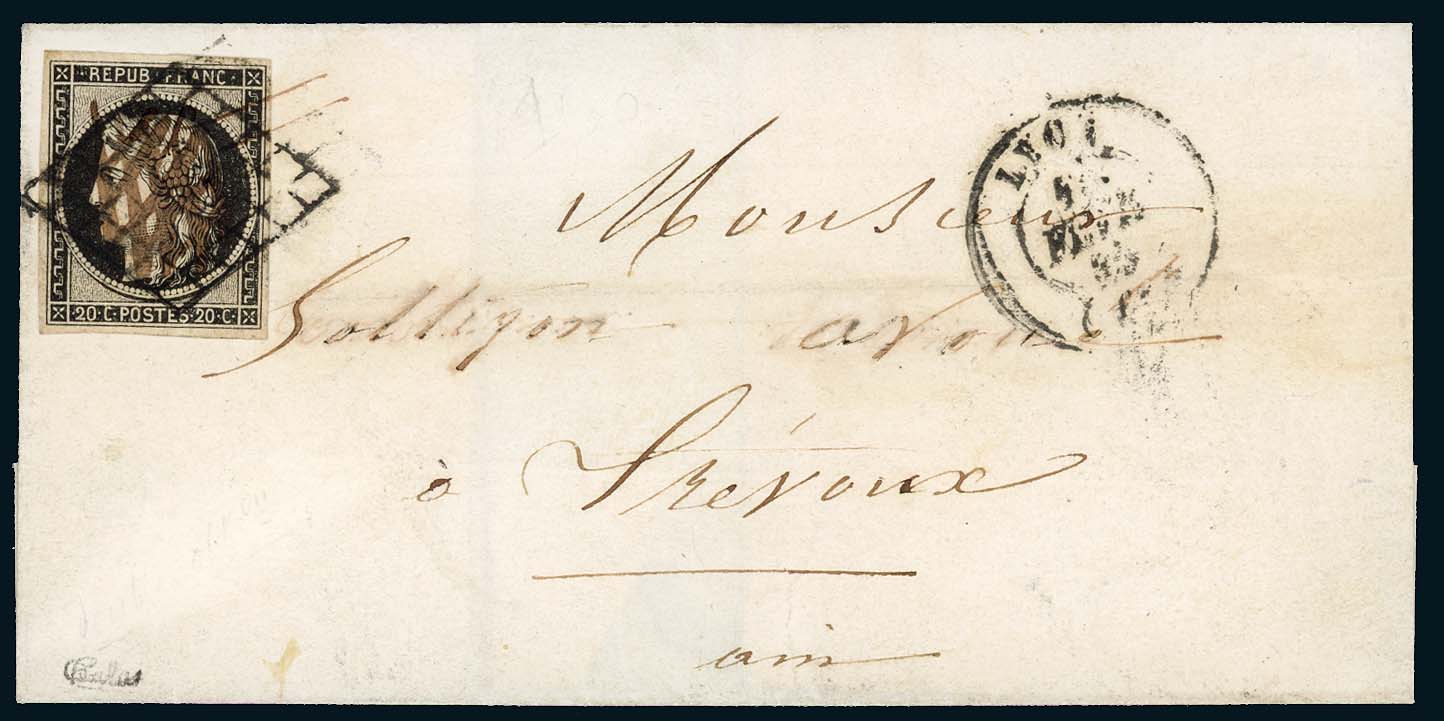 REPUB FRANC
20·C·POSTES·20·C·
LYO
Monsieur
avoué
à Trévoux
ain
Calves